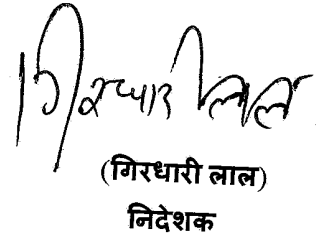 गिरधारी लाल
(गिरधारी लाल)
निदेशक